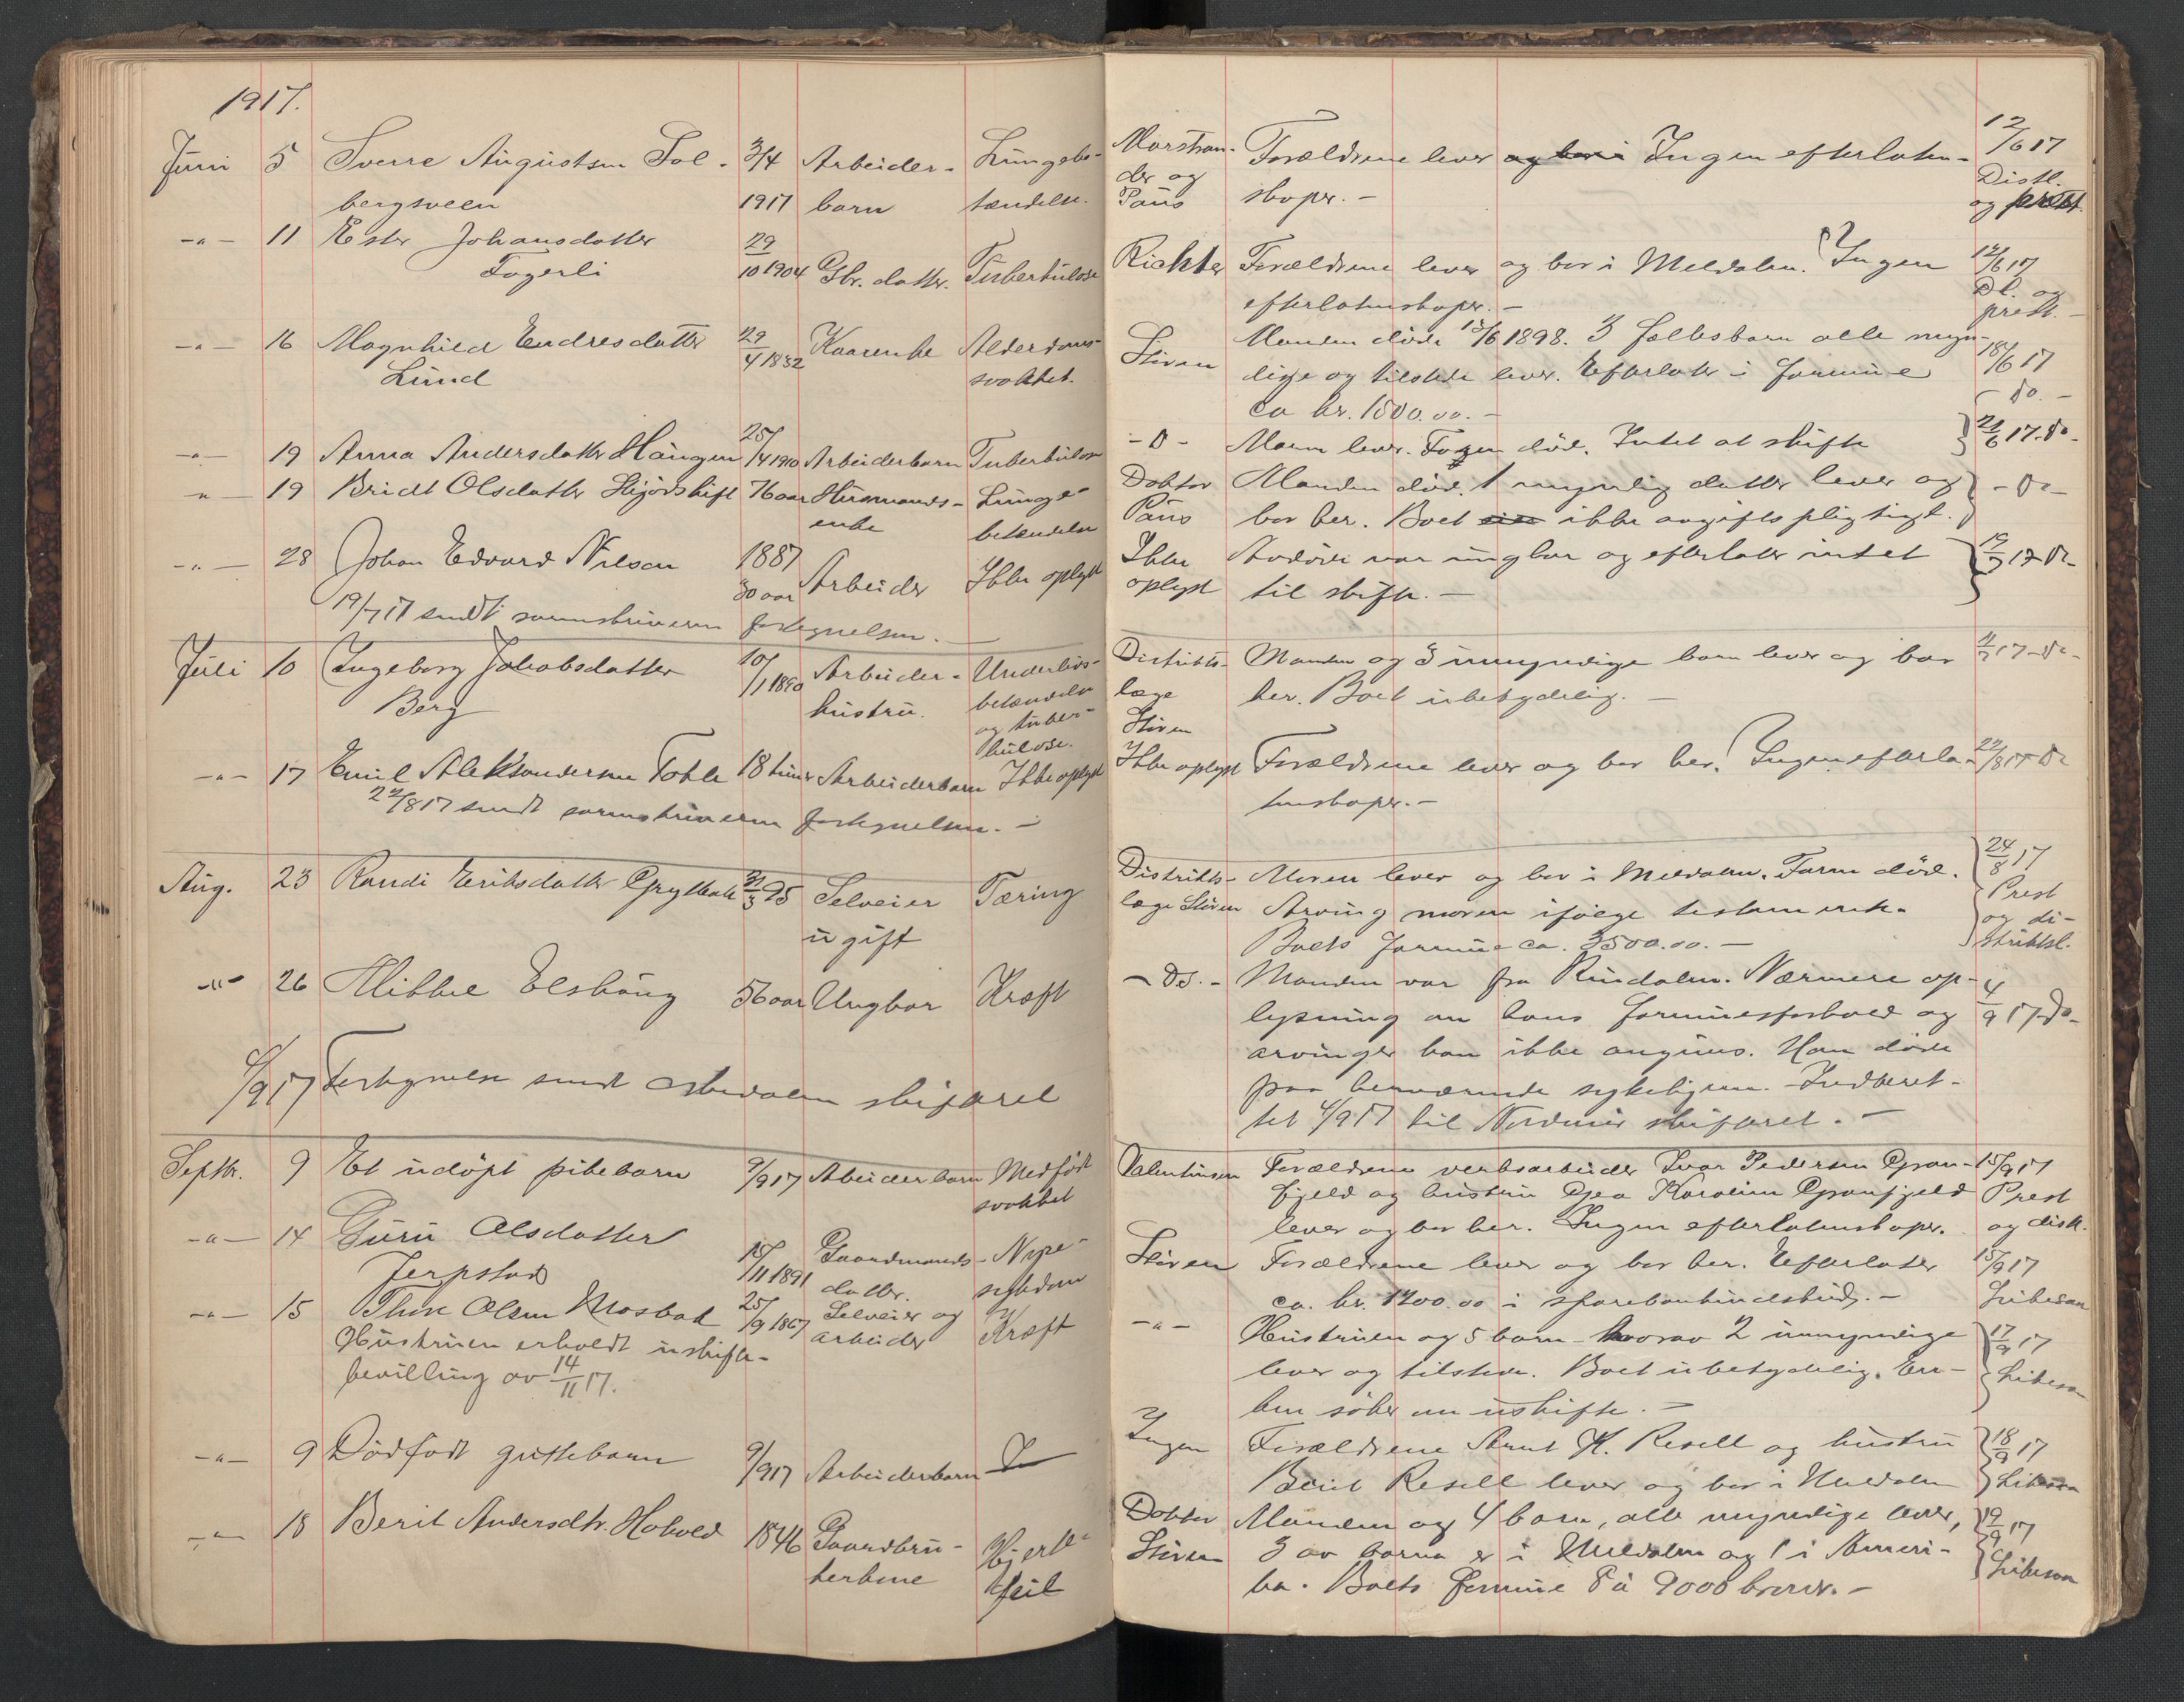 1917.
Juni 5 Sverre Augustsen Sol- 3/4 Arbeider- Lungebe-
bergsveen 1917 barn tændelse.
-"- 11 Ester Johansdatter 29
Fagerli 10 1904 Gbr. datter. Tuberkulose
-"- 16 Magnhild Endresdatter 29/4 1832 Kaarenke Alderdoms-
Lund svakhet.
-"- 19 Anna Andersdatter Haugen 25/4 1910 Arbeiderbarn Tuberkulose
-"- 19 Bridt Olsdatter 76 aar Husmands- Lunge-
enke betændelse
-"- 28 Johan Edvard Nilsen 1887
30 aar Arbeider Ikke oplyst
19/7 17 sendt sorenskriveren fortegnelsen.
Juli 10 Ingeborg Jakobsdatter 10/1 1890 Arbeider- Underlivs-
Berg hustru. betændelse
og tuber-
kulose.
-"- 17 Emil Aleksandersen Tokle 18 timer Arbeiderbarn Ikke oplyst
22/8 17 sendt sorenskriveren fortegnelsen.
Aug. 23 Randi Eriksdatter Grytbak 95 Selveier Tæring
ugift
-"- 26 Mikkel Elshaug 56 aar Ungkar Kræft
4/9 17 Fortegnelse sendt skifteret
Septbr. 9 Et udøpt pikebarn 9/9 17 Abeiderbarn Medfødt
svakhet
-"- 14 Guru Olsdatter
Jerpstad 15/11 1891 Gaardmands- Nyre-
datter. sykdom
-"- 15 Thore Olsen Mosbak 25/9 1867 Selveier og
arbeider Kræft
Hustruen erholdt uskifte-
bevilling av 14/11 17.
-"- 9 Dødfødt guttebarn 9/9 17 Arbeiderbarn
-"- 18 Berit Andersdtr. Hokold 1846 Gaardbru-
kerkone Hjerte-
feil
Morstran-
der og
Paus Forældrene lever Ingen efterlaten- 12/6 17
skaper. - Distl.
og prest.
Richter Forældrene lever og bor i Meldalen. Ingen 12/6 17
efterlatenskaper. - Dl. og
prest. -
Støren Manden døde 18/6 1898. 3 fællesbarn alle myn-
dige og tilstede lever. Efterlater i formue 18/6 17
ca kr. 1500.00. - - Do. -
- D - Moren lever. Faren død. Intet at skifte 21/6 17. Do -
Doktor Manden død. 1 myndig datter lever og - Do -
Paus bor her. Boet ikke avgiftspligtigt.
Ikke Avdøde var ungkar og efterlater intet
oplyst til skifte. -
Distrikts- Manden og 3 umyndige barn lever og bor
læge her. Boet ubetydelig. -
Støren
Ikke oplyst Forældrene lever og bor her. Ingen efterla- 22/8 17 Do
tenskaper. -
Distrikts- Moren lever og bor i Meldalen. Faren død. 24/8 17
læge Støren Arving moren ifølge testamente. Prest
Boets formue ca. 3500.00. - og di-
striktsl.
- Do. - Manden var fra Rindalen. Nærmere op-
lysning om hans formuesforhold og 4/9 17 Do -
arvinger kan ikke angives. Han døde
paa herværende sykehjem. Indberet-
tet 4/9 17 til Nordmør skifteret. -
Valentinsen Forældrene verksarbeider Ivar Pedersen Gran- 15/9 17
fjeld og hustru Karoline Granfjeld Prest
lever og bor her. Ingen efterlatenskaper. og distr.
Støren Forældrene lever og bor her. Efterlater 15/9 17
ca. kr. 1200.00 i sparebankindskud. -
-"- Hustruen og 5 barn - hvorav 2 umyndige 17/9 17
lever og tilstede. Boet ubetydelig. En-
ken søker om uskifte. -
Ingen Forældrene Arnt K. Resell og hustru 18/9 17
Berit Resell lever og bor i Meldalen
Doktor Manden og 4 barn, alle myndige lever, 19/9 17
Støren 3 av barna er i Meldalen og 1 i Ameri-
ka. Boets formue 8 à 9000 kroner. -